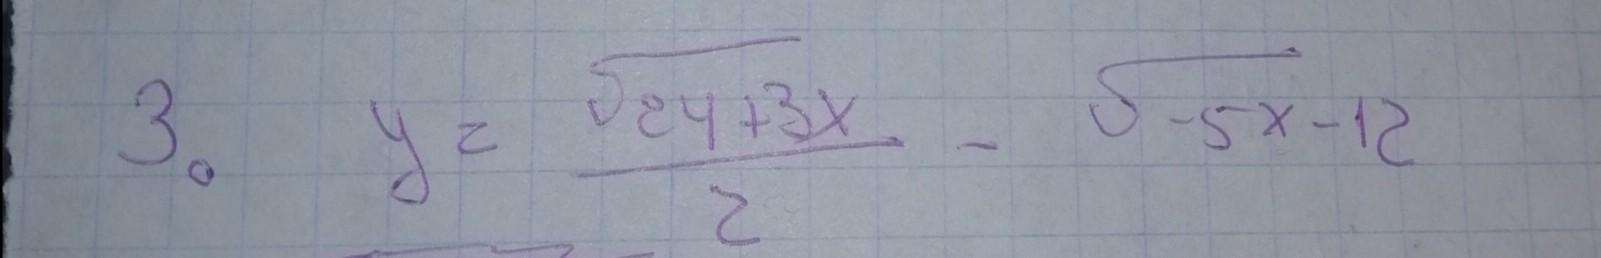 3. y = √24+3x / 2 - √-5x-12